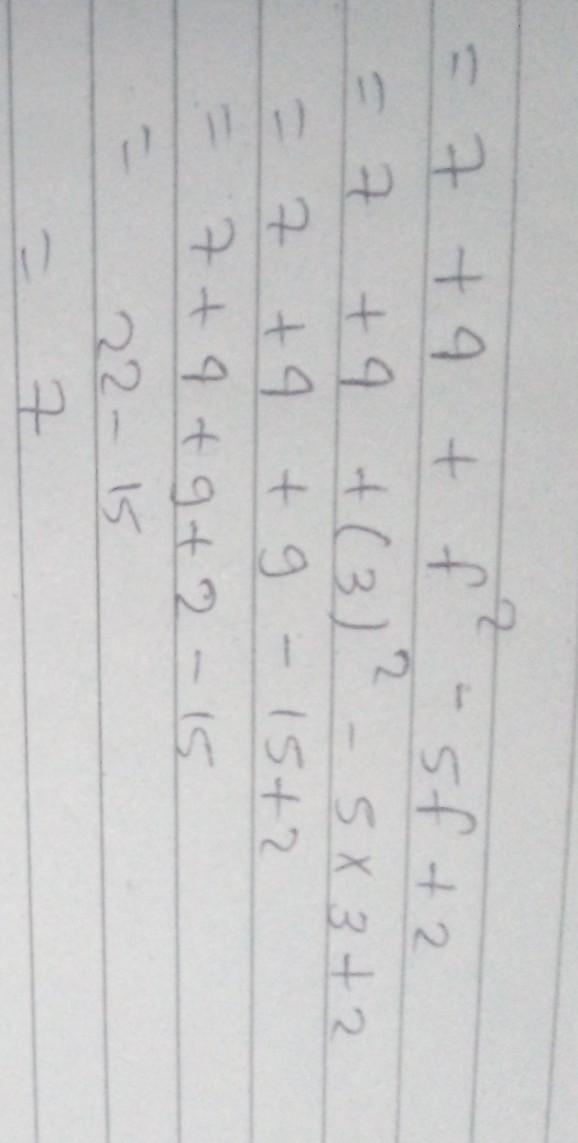 = 7 + 4 + f² - 5f + 2
= 7 + 4 + (3)² - 5 × 3 + 2
= 7 + 4 + 9 - 15 + 2
= 7 + 4 + 9 + 2 - 15
= 22 - 15
= 7